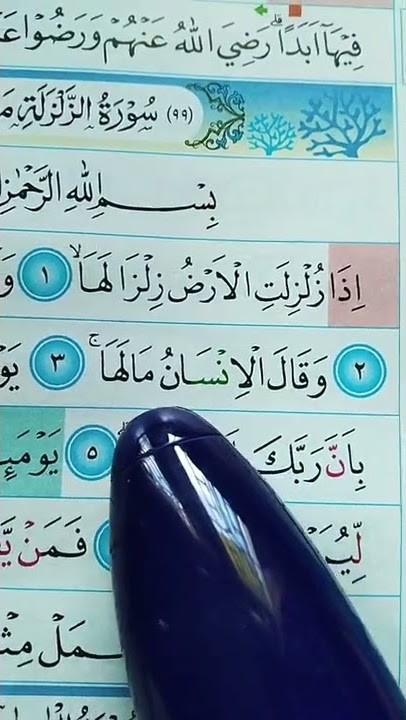 فِيْهَآ اَبَدًا ؕ رَضِيَ اللّٰهُ عَنْهُمْ وَرَضُوْا
(٩٩) سُوْرَةُ الزِّلْزَلَةِ
بِسْمِ اللّٰهِ الرَّحْمٰنِ
اِذَا زُلْزِلَتِ الْاَرْضُ زِلْزَالَهَا ۙ ١ وَ
٢ وَقَالَ الْاِنْسَانُ مَالَهَا ۚ ٣ يَوْ
بِاَنَّ رَبَّكَ ٥ يَوْمَئِ
لِّيُ فَمَنْ يَّ